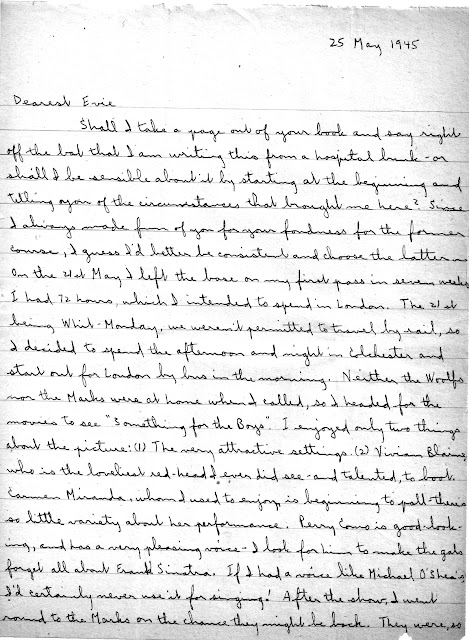 25 May 1945
Dearest Evie
Shall I take a page out of your book and say right
off the bat that I am writing this from a hospital bunk - or
shall I be sensible about it by starting at the beginning and
telling you of the circumstances that brought me here? Since
I always made fun of you for your fondness for the former
course, I guess I'd better be consistent and choose the latter —
On the 21st May I left the base on my first pass in seven weeks
I had 72 hours, which I intended to spend in London. The 21st
being Whit-Monday, we weren't permitted to travel by rail, so
I decided to spend the afternoon and night in Colchester and
start out for London by bus in the morning. Neither the Woolfs
nor the Marks were at home when I called, so I headed for the
movies to see "Something for the Boys". I enjoyed only two things
about the picture: (1) The very attractive settings. (2) Vivian Blaine,
who is the loveliest red-head I ever did see - and talented, to boot.
Carmen Miranda, whom I used to enjoy, is beginning to pall - there's
so little variety about her performance. Perry Como is good-look-
ing, and has a very pleasing voice - I look for him to make the gals
forget all about Frank Sinatra. If I had a voice like Michael O'Shea's
I'd certainly never use it for singing! After the show, I went
round to the Marks on the chance they might be back. They were, so